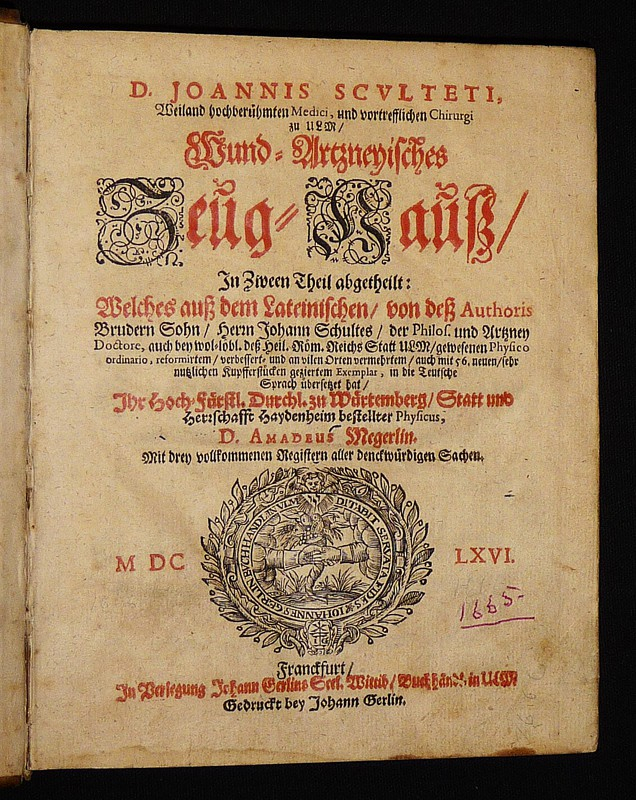 D. JOANNIS SCVLTETI,
Weiland hochberühmten Medici, und vortrefflichen Chirurgi
zu ULM/
Wund-Artzneyisches
Zeüg-Hauß/
In Zween Theil abgetheilt:
Welches auß dem Lateinischen/ von deß Authoris
Brudern Sohn/ Herrn Johann Schultes/ der Philos. und Artzney
Doctore, auch bey wol-lobl. deß Heil. Röm. Reichs Statt ULM/ gewesenen Physico
ordinario, reformirtem/ verbessert- und an vilen Orten vermehrtem/ auch mit 56. neuen/ sehr
nutzlichen Kupfferstücken geziertem Exemplar, in die Teutsche
Sprach übersetzet hat/
Ihr Hoch-Fürstl. Durchl. zu Würtemberg/ Statt und
Herrschafft Haydenheim bestellter Physicus,
D. AMADEUS Megerlin.
Mit drey vollkommenen Registern aller denckwürdigen Sachen.
DITABIT SERVATA FIDES
IOHANNES GERLIN BUCHHANDL IN VLM
M DC LXVI.
1665
Franckfurt/
In Verlegung Johann Gerlins Seel. Wittib/ Buchhändl. in ULM
Gedruckt bey Johann Gerlin.